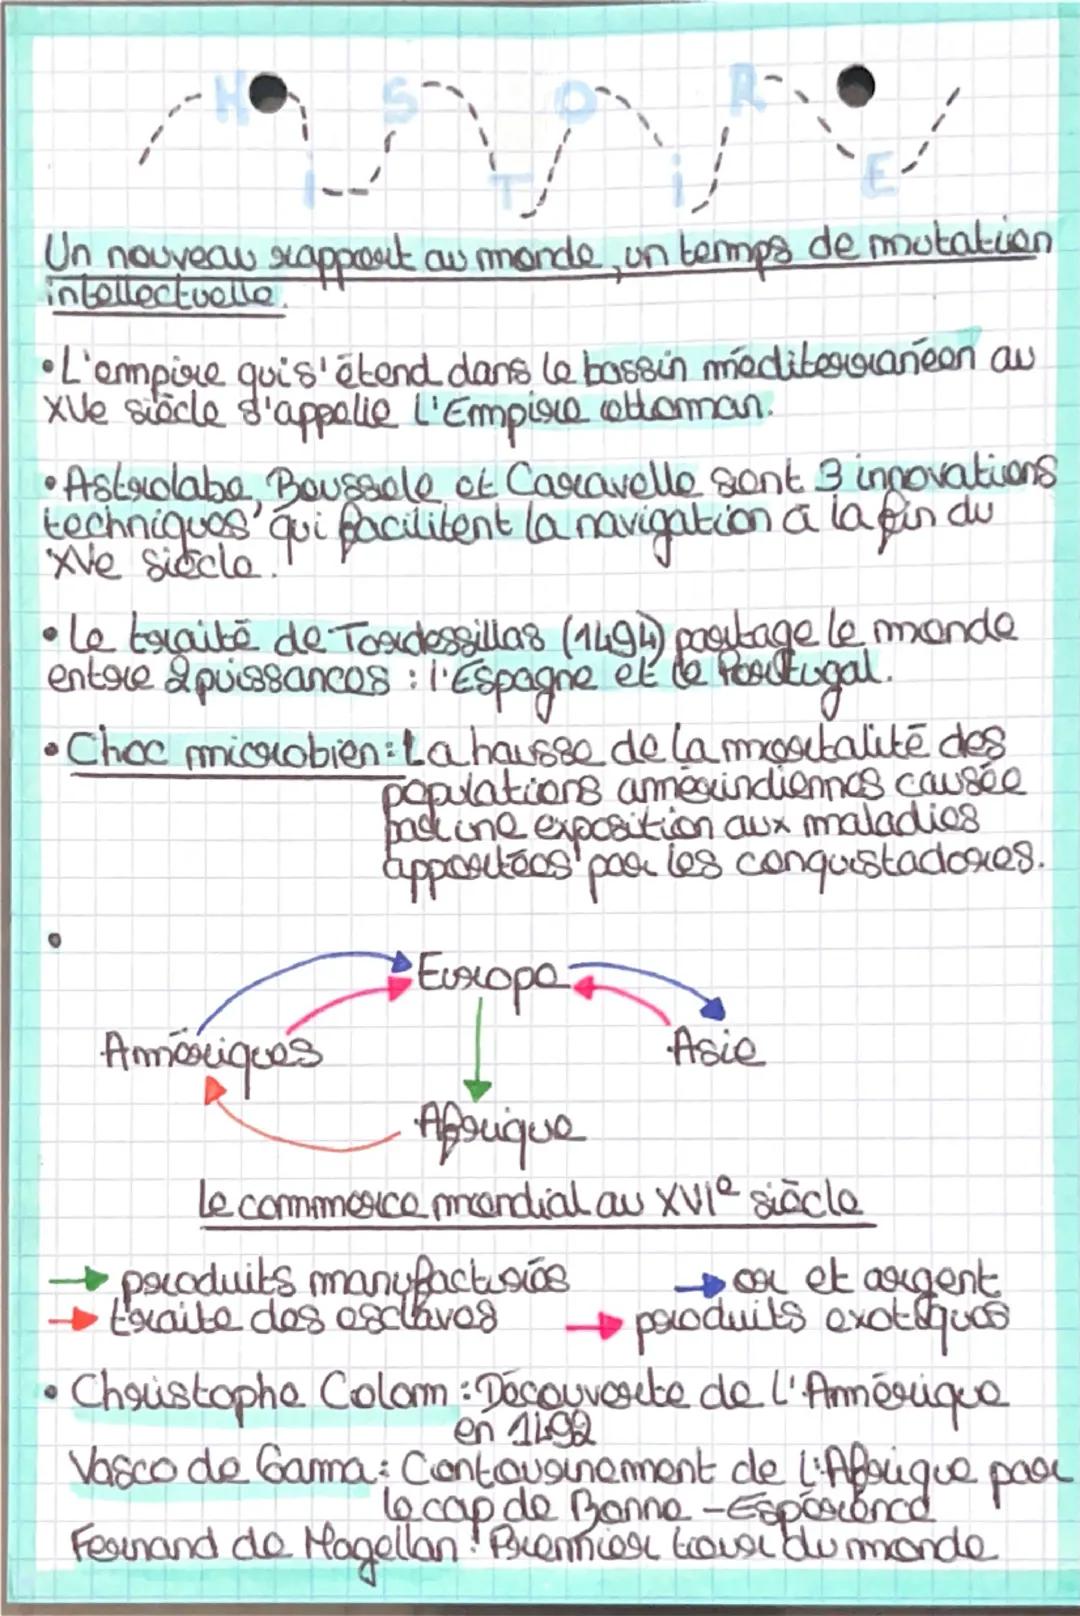 HISTOIRE
Un nouveau rapport au monde, un temps de mutation
intellectuelle.
• L'empire qui s'étend dans le bassin méditerranéen au
XVe siècle s'appelle L'Empire ottoman.
• Astrolabe, Boussole et Caravelle sont 3 innovations
techniques qui facilitent la navigation à la fin du
XVe siècle.
• Le traité de Tordessillas (1494) partage le monde
entre 2 puissances : l'Espagne et le Portugal.
• Choc microbien : La hausse de la mortalité des
populations amérindiennes causée
par une exposition aux maladies
apportées par les conquistadores.
•
Europe
Amériques
Asie
Afrique
Le commerce mondial au XVIe siècle
→ produits manufacturiés → or et argent
→ traite des esclaves → produits exotiques
• Christophe Colom : Découverte de l'Amérique
en 1492
Vasco de Gama : Contournement de l'Afrique par
le cap de Bonne-Espérence
Fernand de Magellan : Premier tour du monde